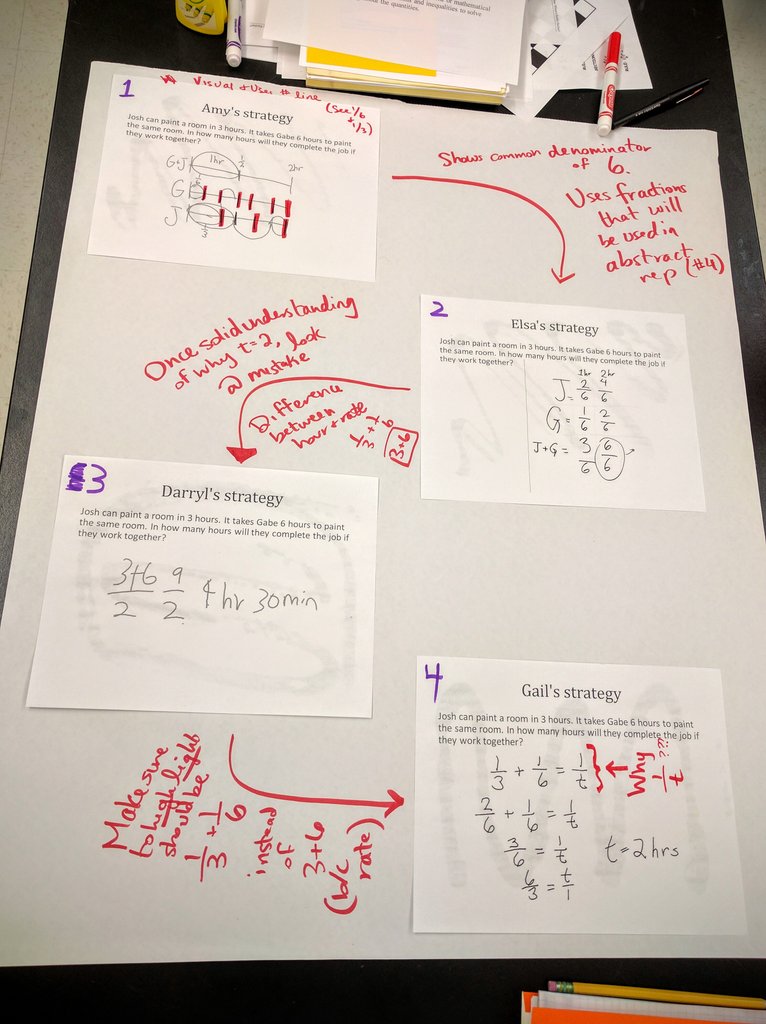 of mathematical
and inequalities to solve
the quantities.
1
Visual + Uses # line
(see 1/6
+ 1/3)
Amy's strategy
Josh can paint a room in 3 hours. It takes Gabe 6 hours to paint
the same room. In how many hours will they complete the job if
they work together?
G+J 1hr 2hr
G
J
Shows common denominator
of 6.
Uses fractions
that will
be used in
abstract
rep (#4)
2
Elsa's strategy
Josh can paint a room in 3 hours. It takes Gabe 6 hours to paint
the same room. In how many hours will they complete the job if
they work together?
1hr 2hr
J = 2/6 4/6
G = 1/6 2/6
J+G = 3/6 6/6
Once solid understanding
of why t=2, look
@ mistake
Difference
between
hour + rate
1/3 + 1/6
3+6
3
Darryl's strategy
Josh can paint a room in 3 hours. It takes Gabe 6 hours to paint
the same room. In how many hours will they complete the job if
they work together?
3+6/2 9/2 4 hr 30 min
Make sure
to highlight
should be
1/3 + 1/6
instead
of
3+6
(b/c
rate)
4
Gail's strategy
Josh can paint a room in 3 hours. It takes Gabe 6 hours to paint
the same room. In how many hours will they complete the job if
they work together?
1/3 + 1/6 = 1/t
Why
1/t
???
2/6 + 1/6 = 1/t
3/6 = 1/t t=2hrs
6/3 = t/1